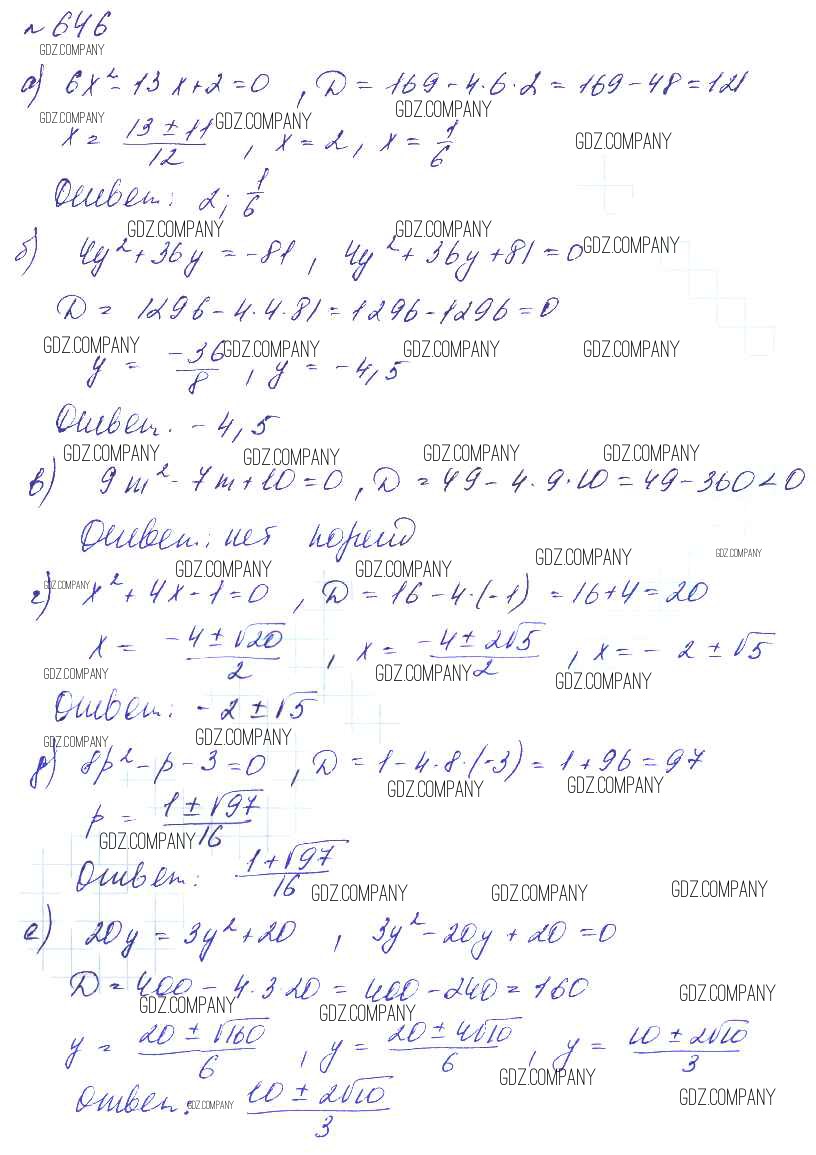 № 646
GDZ.COMPANY
а) 6x² - 13x + 2 = 0 , D = 169 - 4·6·2 = 169 - 48 = 121
GDZ.COMPANY GDZ.COMPANY GDZ.COMPANY GDZ.COMPANY
x = (13 ± 11)/12 , x = 2, x = 1/6
Ответ: 2; 1/6
GDZ.COMPANY GDZ.COMPANY GDZ.COMPANY
б) 4y² + 36y = -81 , 4y² + 36y + 81 = 0
D = 1296 - 4·4·81 = 1296 - 1296 = 0
GDZ.COMPANY GDZ.COMPANY GDZ.COMPANY GDZ.COMPANY
y = -36/8 , y = -4,5
Ответ. -4,5
GDZ.COMPANY GDZ.COMPANY GDZ.COMPANY GDZ.COMPANY
в) 9m² - 7m + 10 = 0 , D = 49 - 4·9·10 = 49 - 360 < 0
Ответ: нет корней
GDZ.COMPANY GDZ.COMPANY GDZ.COMPANY GDZ.COMPANY GDZ.COMPANY
г) x² + 4x - 1 = 0 , D = 16 - 4·(-1) = 16 + 4 = 20
x = (-4 ± √20)/2 , x = (-4 ± 2√5)/2 , x = -2 ± √5
GDZ.COMPANY GDZ.COMPANY GDZ.COMPANY
Ответ: -2 ± √5
GDZ.COMPANY GDZ.COMPANY
д) 8p² - p - 3 = 0 , D = 1 - 4·8·(-3) = 1 + 96 = 97
GDZ.COMPANY GDZ.COMPANY
p = (1 ± √97)/16
GDZ.COMPANY
Ответ: (1 + √97)/16
GDZ.COMPANY GDZ.COMPANY GDZ.COMPANY
е) 20y = 3y² + 20 , 3y² - 20y + 20 = 0
D = 400 - 4·3 20 = 400 - 240 = 160
GDZ.COMPANY GDZ.COMPANY GDZ.COMPANY
y = (20 ± √160)/6 , y = (20 ± 4√10)/6 , y = (10 ± 2√10)/3
GDZ.COMPANY GDZ.COMPANY
Ответ: GDZ.COMPANY (10 ± 2√10)/3